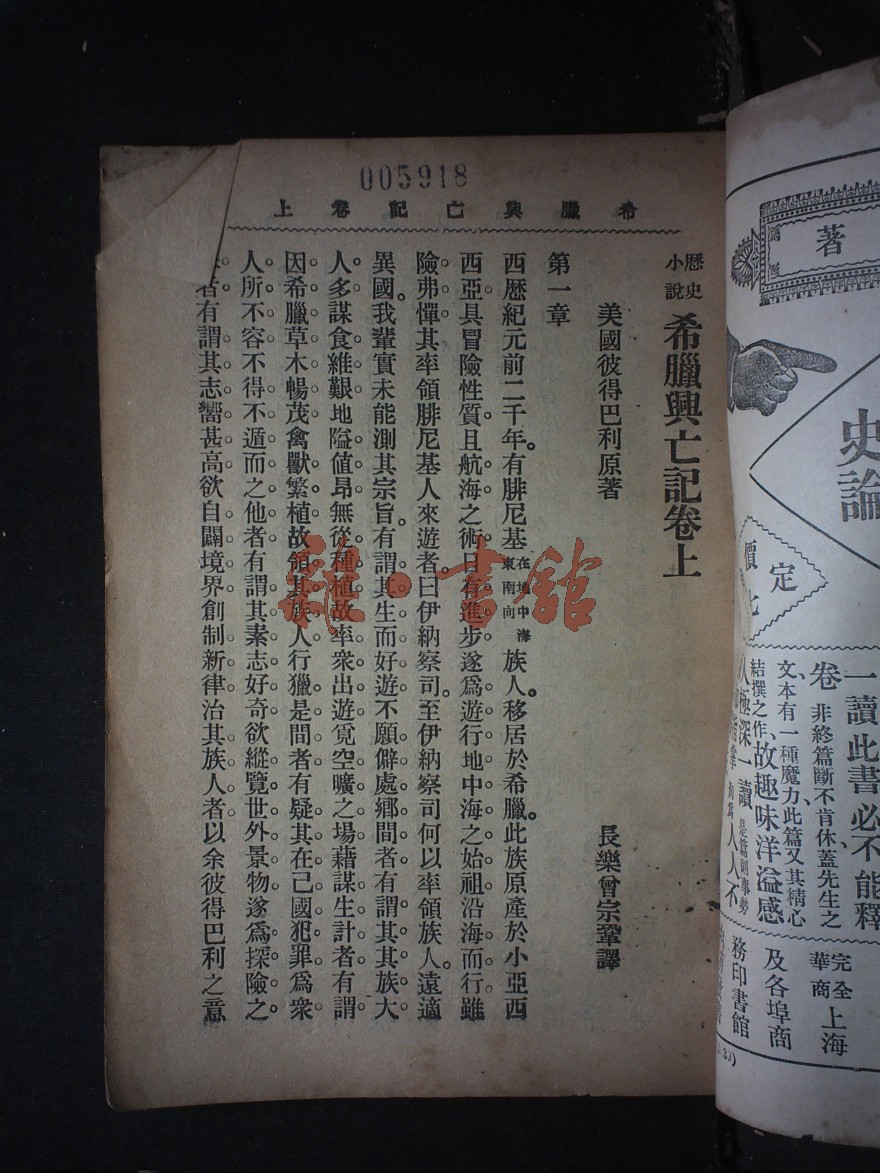 005918
希臘興亡記卷上
歷史小說 希臘興亡記卷上
美國彼得巴利原著 長樂曾宗鞏譯
第一章
西歷紀元前二千年。有腓尼基在地中海東南向族人。移居於希臘。此族原產於小亞西
西亞具冒險性質。且航海之術日有進步。遂爲遊行地中海之始祖。沿海而行。雖
險弗憚。其率領腓尼基人來遊者。曰伊納察司。至伊納察司何以率領族人。遠適
異國。我輩實未能測其宗旨。有謂其生而好遊不願僻處鄉間者。有謂其其族大
人多謀食維艱地隘値昂無從種植故率衆出遊覓空曠之場藉謀生計者有謂
因希臘草木暢茂禽獸繁植故領其族人行獵是間者有疑其在己國犯罪爲衆
人所不容不得不遁而之他者有謂其素志好奇欲縱覽世外景物遂爲探險之
者有謂其志嚮甚高欲自闢境界創制新律治其族人者以余彼得巴利之意
雜·書館
著
史論
定價
一讀此書必不能釋
卷非終篇斷不肯休蓋先生之
文本有一種魔力此篇又其精心
結撰之作、故趣味洋溢感
人極深一讀
人人不
完全華商 上海
及各埠商
務印書館